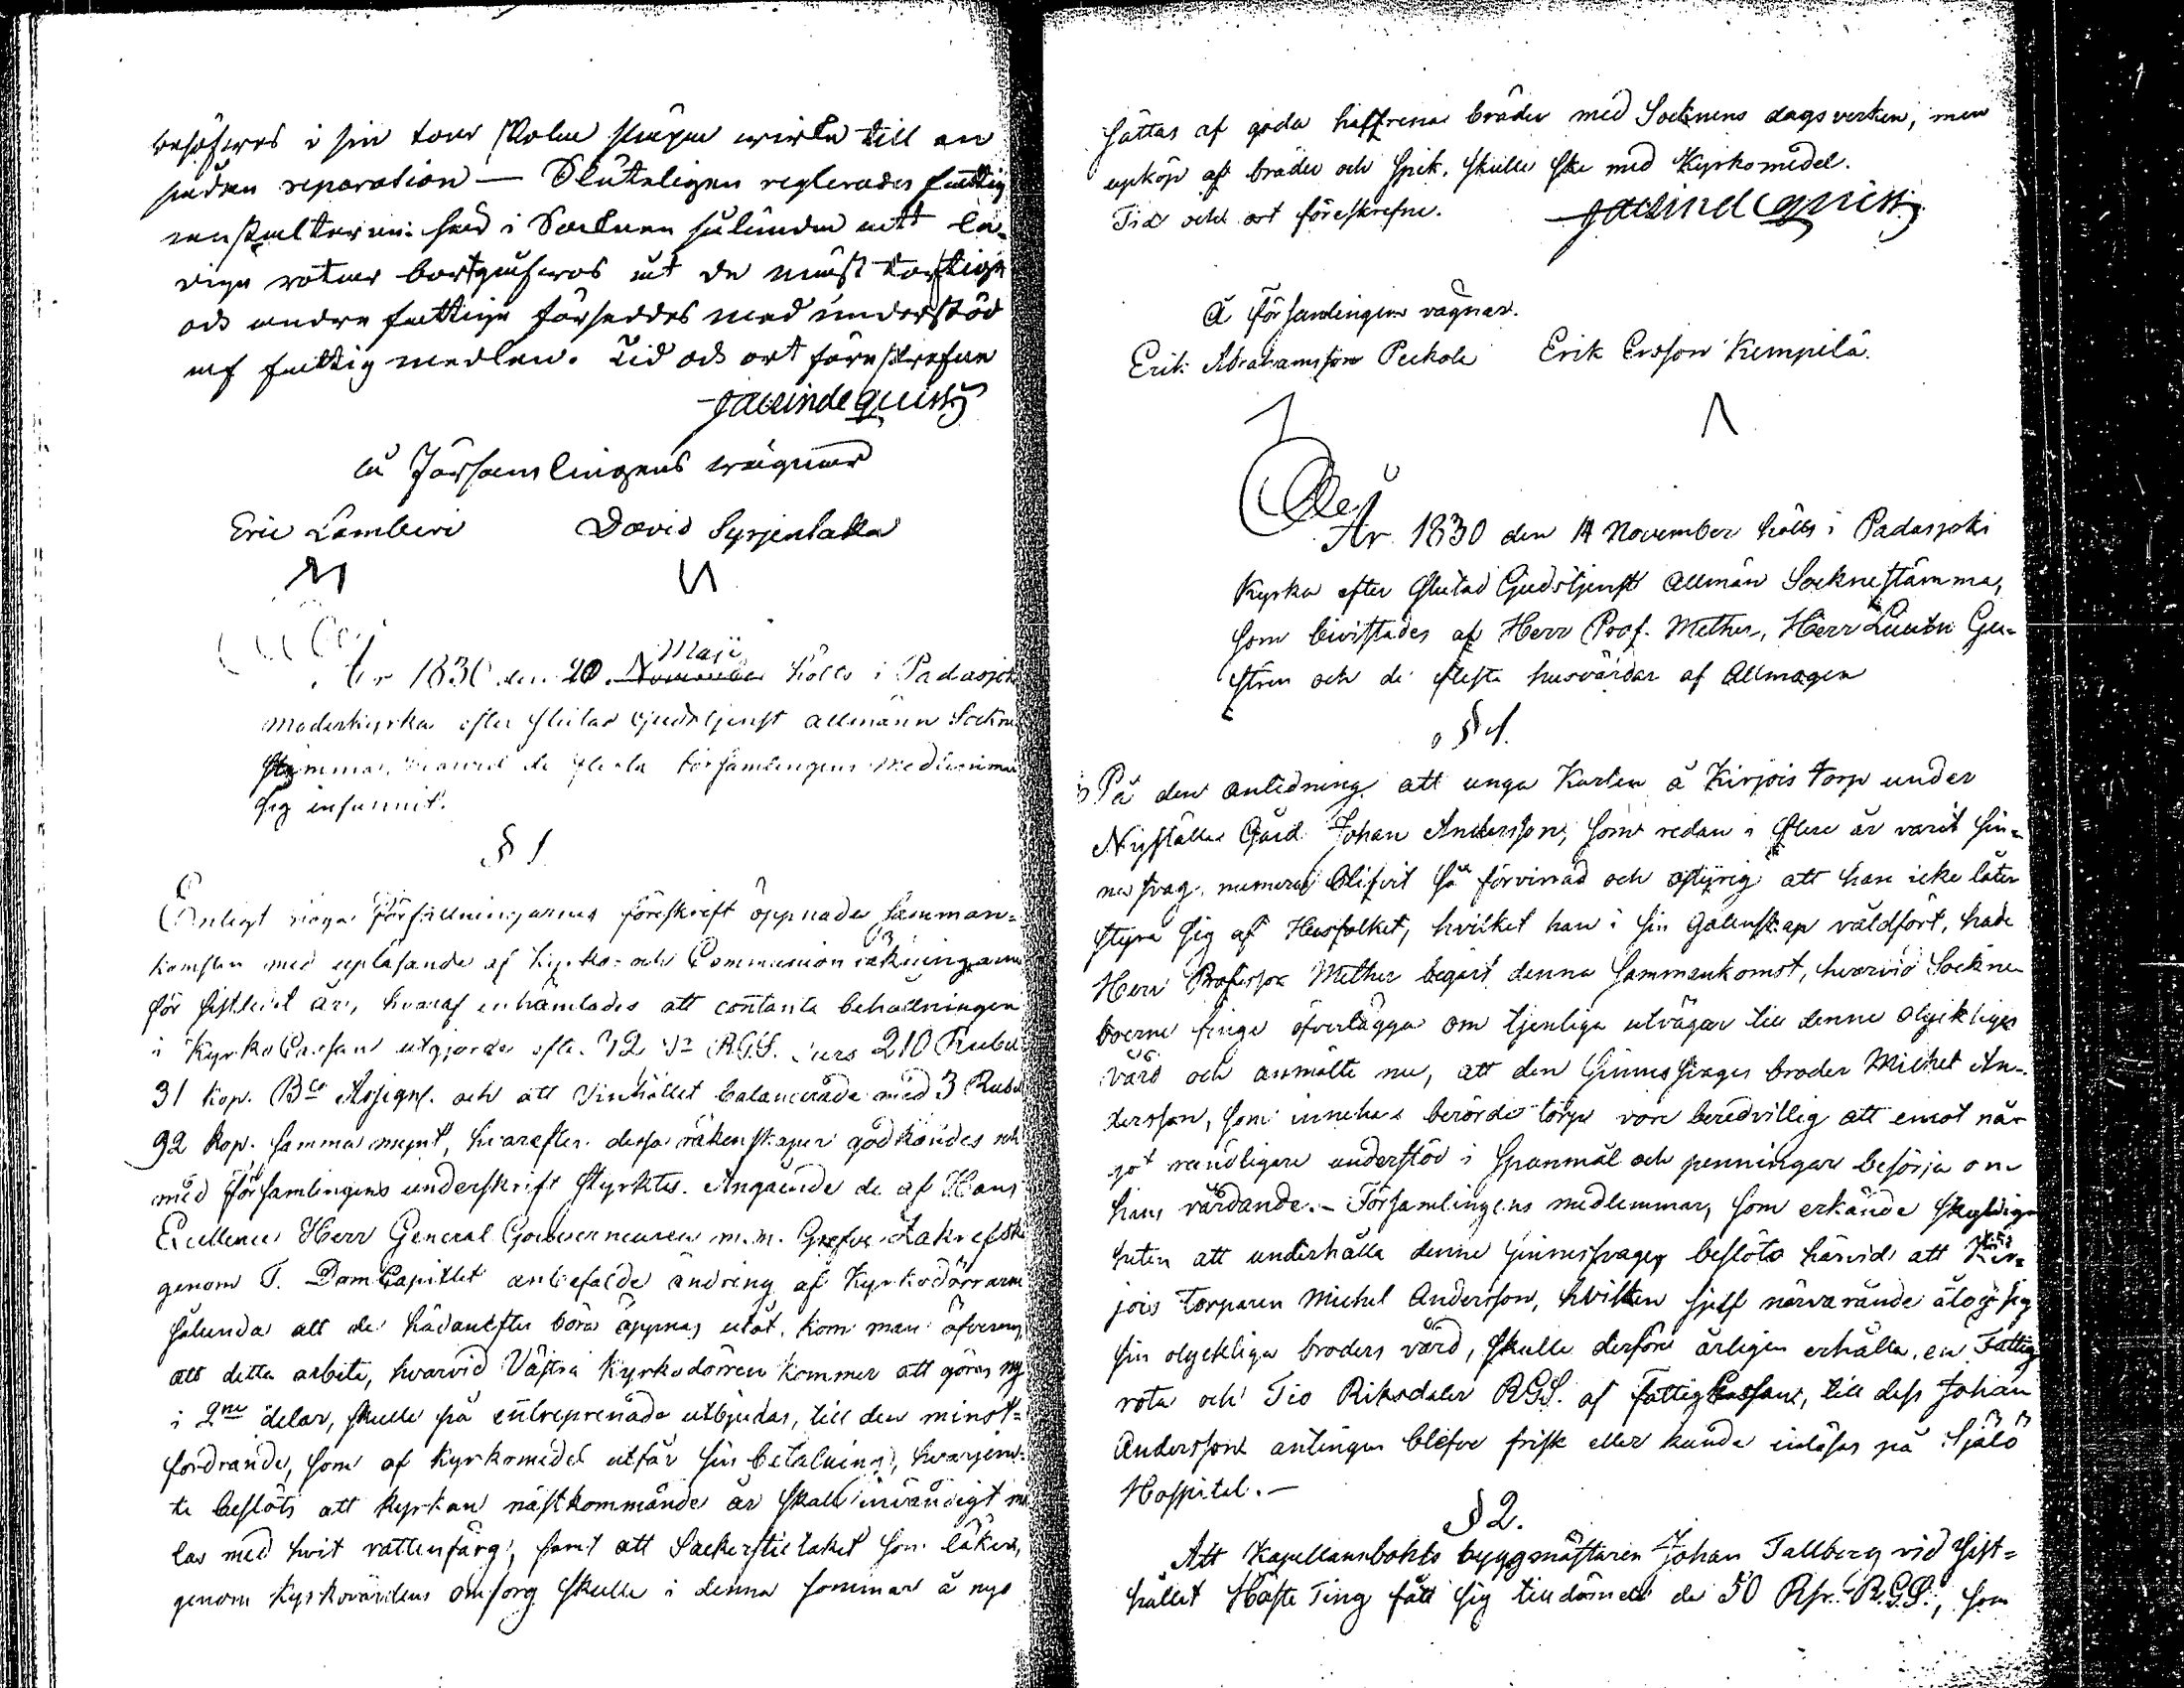 behöfves i sin tour skola skäpa wirke till en
sådan reparation — Sluteligen reglerades fattig
anstalterne här i Socknen sålunda att le-
diga rotar bortgåfvos åt de mäst torftige
och andre fattige förseddes med understöd
af fattig medlen. Tid och ort föreskrefne
Jac Lindeqvist
å Församlingens wägnar
Eric Lamberi David Syrjentakka
År 1830 den 20 Maji hölls i Padasjoki
Moderkyrka efter slutad Gudstjenst allmänn Sockne
stämma, hvarvid de fleste Församlingens Medlemmar
sig infunnit.
§ 1
Enligt Författningarnes föreskrift öppnades samman-
komsten med uplåsande af kyrko- och Communion räkningarne
för sistledit år, hvaraf inhämtades att contanta behållningen
i KyrkoCassan utgjorde 210 Rubel
31 kop. Bco Assign. och att Vinhållet balancerade med 3 Rubel
92 kop. samma mynt, hvarefter dessa räkenskaper godkändes och
med Församlingens underskrift styrktes. Angående de af Hans
Excellence Herr General Gouverneuren m.m. Grefve Zakrefski
genom T. DomCapitlet anbefalde ändring af Kyrkodörrarne
sålunda att de hädanefter böra öppnas utåt, kom man öfverens,
att detta arbete, hvarvid Västra Kyrkodörren kommer att göras ny
i 2ne delar, skulle på entreprenade utbjudas, till den minst-
fordrande, som af Kyrkomedel utfår sin betalning, hvarjem-
te beslöts att kyrkan nästkommande år skall invändigt må
las med hvit vattenfärg, samt att Sackerstietaket som läker,
genom Kyrkovärdens omsorg skulle i denna sommar å nyo
sättas af goda bräder med Socknens dagsverken, men
upköp af bräder och spik, skulle ske med Kyrkomedel.
Tid och ort föreskrefne. Jac Lindeqvist
å Församlingens vägnar.
Erik Abrahamsson Peckola Erik Ersson Kumpila
År 1830 den 14 November hölls i Padasjoki
Kyrka efter slutad Gudstjenst allmän Socknestämma,
som bivistades af Herr Prof. Mether, Herr Lieutn Gu-
strin och de fleste husvärdar af Allmogen
§ 1.
På den anledning att unga Karlen å Kirjois torp under
Nyställes Gård Johan Andersson, som redan i flere år varit sin-
nesvag, numera blifvit så förvirrad och ostyrig att han icke låter
styra sig af Husfolket, hvilket han i sin galenskap våldfört, hade
Herr Professor Mether begärt denna Sammankomst, hvarvid Sockne
boerne finge öfverlägga om tjenliga utvägar till denne olyckliges
vård och anmälte nu, att den Sinnessvages broder Michel An-
dersson, som innehar berörde torp vore beredvillig att emot nå-
got understöd i Spanmål och penningar besörja om
hans vårdande. – Församlingens medlemmar, som erkände skyldig-
heten att underhålla denne sinnessvage, beslöto härvid att Kir-
jois Torparen Michel Andersson, hvilken sjelf närvarande åtog sig
sin olyckliga broders vård, skulle derföre årligen erhålla en Fattig
rota och Tio Riksdaler RGS. af FattigCassan, till dess Johan
Andersson antingen blefve frisk eller kunde inlösas på Själö
Hospital. –
§ 2.
Att Kapellansbohls byggmästaren Johan Tallberg vid sist-
hållet Höste Ting fått sig tilldömde de 50 Rdr. R.G.S., som